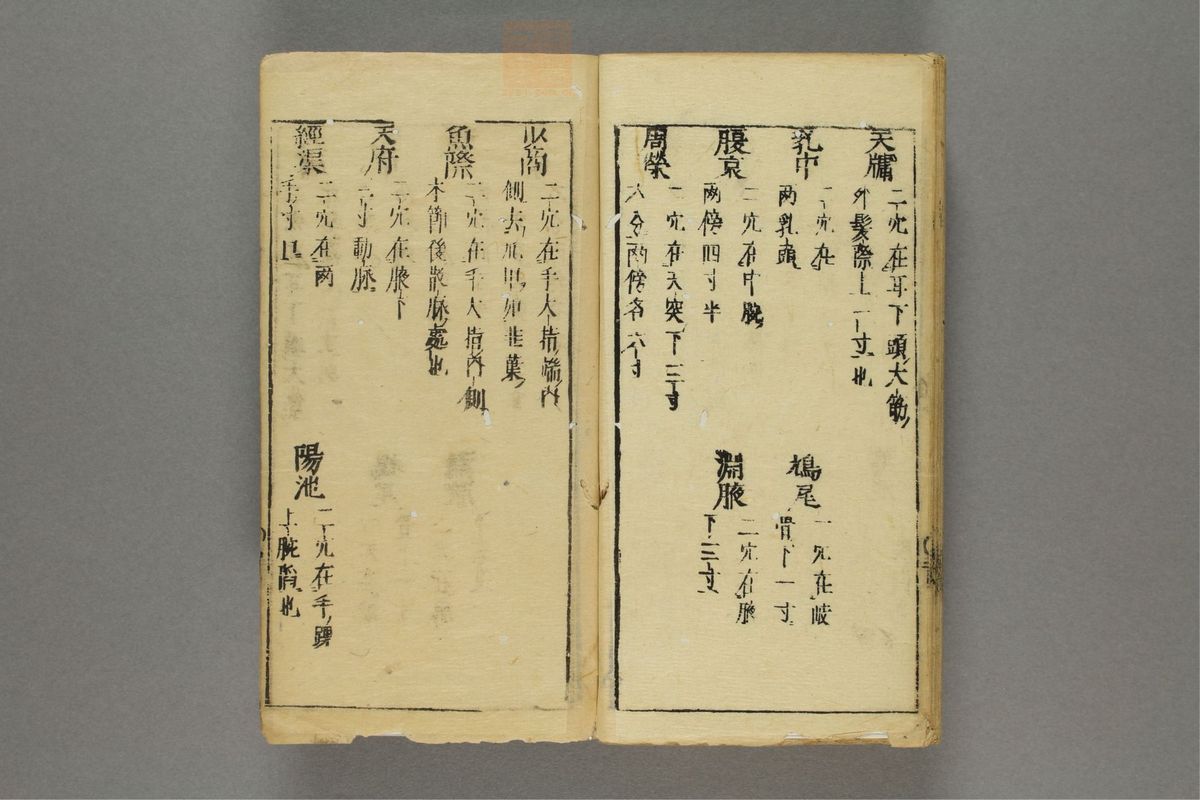 天牖
二穴在耳下頸大筋
外髮際上一寸也
乳中
二穴在
兩乳頭
鳩尾
一穴在歧
骨下一寸
腹哀
二穴在中脘
兩傍四寸半
淵腋
二穴在腋
下三寸
周榮
二穴在天突下三寸
六分兩傍各六寸
少商
二穴在手大指端內
側去爪甲如韭葉
魚際
二穴在手大指內側
本節後散脉處也
天府
二穴在腋下
三寸動脉
經渠
二穴在兩
手寸口
陽池
二穴在手踝
上腕
也